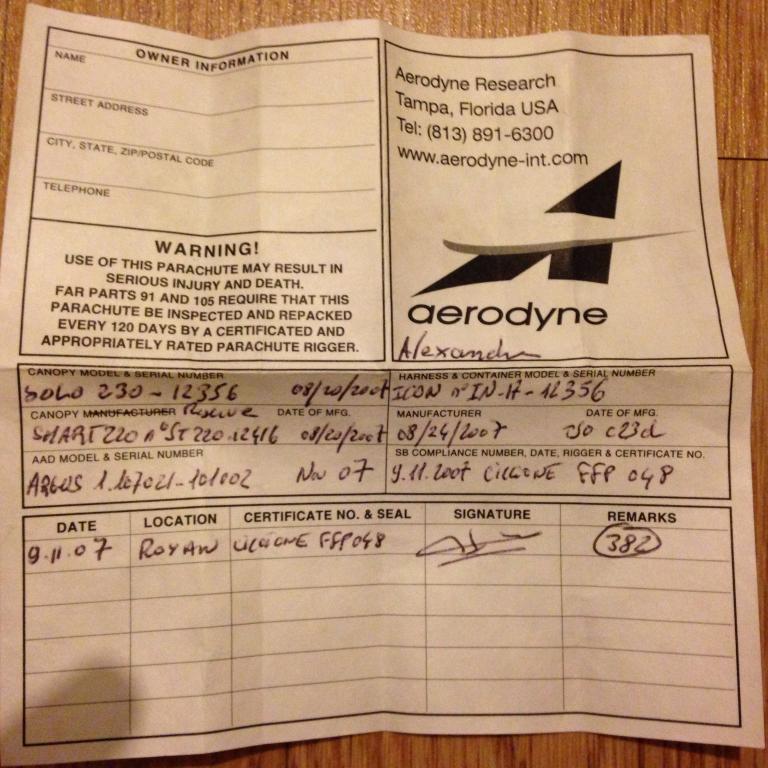 OWNER INFORMATION
NAME
STREET ADDRESS
CITY, STATE, ZIP/POSTAL CODE
TELEPHONE
WARNING!
USE OF THIS PARACHUTE MAY RESULT IN
SERIOUS INJURY AND DEATH.
FAR PARTS 91 AND 105 REQUIRE THAT THIS
PARACHUTE BE INSPECTED AND REPACKED
EVERY 120 DAYS BY A CERTIFICATED AND
APPROPRIATELY RATED PARACHUTE RIGGER.
Aerodyne Research
Tampa, Florida USA
Tel: (813) 891-6300
www.aerodyne-int.com
aerodyne
CANOPY MODEL & SERIAL NUMBER
SOLO 230 - 12356 08/20/2007
CANOPY MANUFACTURER Reserve DATE OF MFG.
SMART 220 n° ST 220-12416 08/20/2007
AAD MODEL & SERIAL NUMBER
ARGUS 1.107021-101002 Nov 07
HARNESS & CONTAINER MODEL & SERIAL NUMBER
ICON n° IN-H-12356
MANUFACTURER DATE OF MFG.
08/24/2007 TSO c23d
SB COMPLIANCE NUMBER, DATE, RIGGER & CERTIFICATE NO.
9.11.2007 FFP 048
DATE LOCATION CERTIFICATE NO. & SEAL SIGNATURE REMARKS
9.11.07 ROYAN FFP048 382